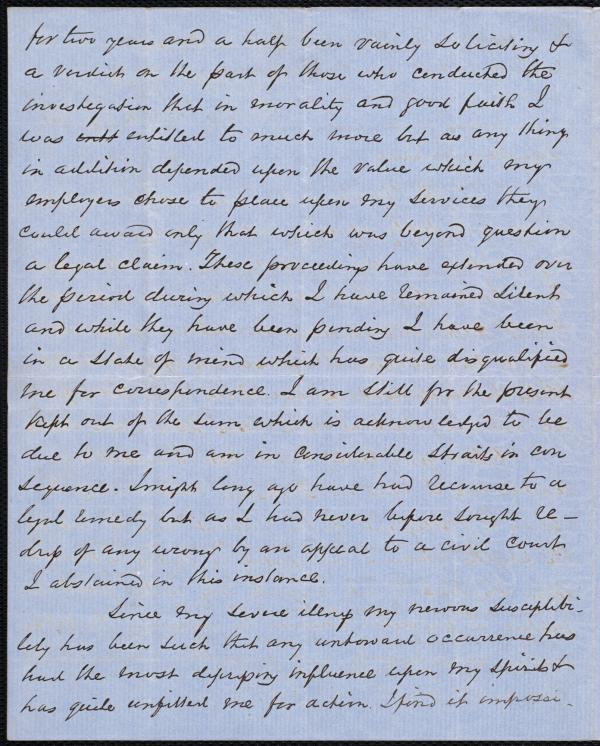 for two years and a half been vainly soliciting &
a verdict on the part of those who conducted the
investigation that in morality and good faith I
was entitled to much more but as any thing
in addition depended upon the value which my
employers chose to place upon my services they
could award only that which was beyond question
a legal claim. These proceedings have extended over
the period during which I have remained silent
and while they have been pending I have been
in a state of mind which has quite disqualified
me for correspondence. I am still for the present
kept out of the sum which is acknowledged to be
due to me and am in considerable straits in con
sequence. I might long ago have had recourse to a
legal remedy but as I had never before sought re-
dress of any wrong by an appeal to a civil court
I abstained in this instance.
Since my severe illness my nervous susceptibi-
lity has been such that any untoward occurrence has
had the most depressing influence upon my spirits &
has quite unfitted me for action. I find it impossi-